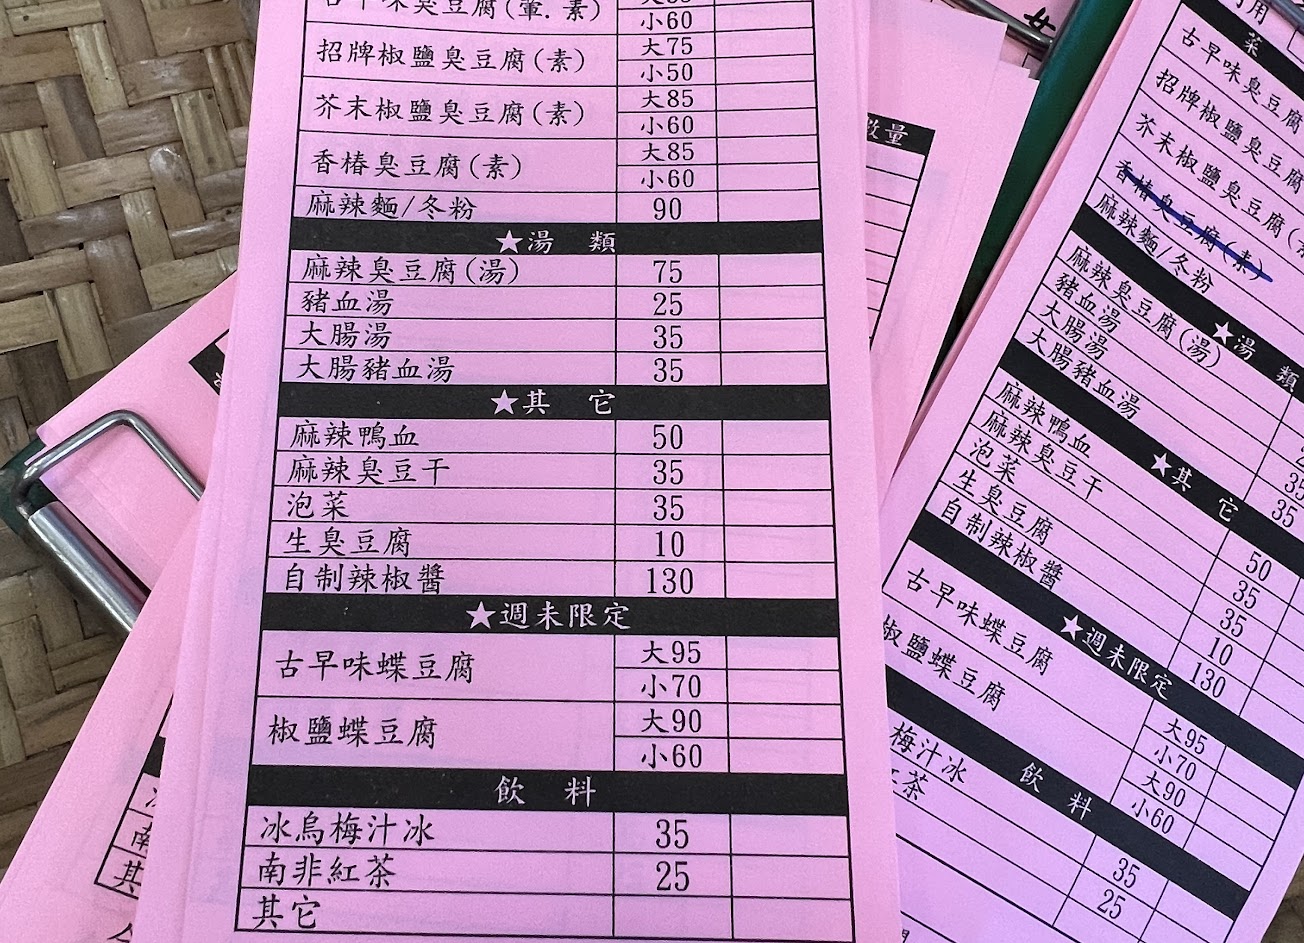 古早味臭豆腐(葷.素)
小60
招牌椒鹽臭豆腐(素) 大75
小50
芥末椒鹽臭豆腐(素) 大85
小60
香椿臭豆腐(素) 大85
小60
麻辣麵/冬粉 90
★湯 類
麻辣臭豆腐(湯) 75
豬血湯 25
大腸湯 35
大腸豬血湯 35
★其 它
麻辣鴨血 50
麻辣臭豆干 35
泡菜 35
生臭豆腐 10
自制辣椒醬 130
★週未限定
古早味蝶豆腐 大95
小70
椒鹽蝶豆腐 大90
小60
飲 料
冰烏梅汁冰 35
南非紅茶 25
其它
數量
用
菜
古早味臭豆腐
招牌椒鹽臭豆腐
芥末椒鹽臭豆腐(素
香椿臭豆腐(素)
麻辣麵/冬粉
★湯 類
麻辣臭豆腐(湯)
豬血湯
大腸湯 35
大腸豬血湯 35
★其 它
麻辣鴨血 50
麻辣臭豆干 35
泡菜 35
生臭豆腐 10
自制辣椒醬 130
★週未限定
古早味蝶豆腐 大95
小70
椒鹽蝶豆腐 大90
小60
飲 料
梅汁冰 35
茶 25
南
其